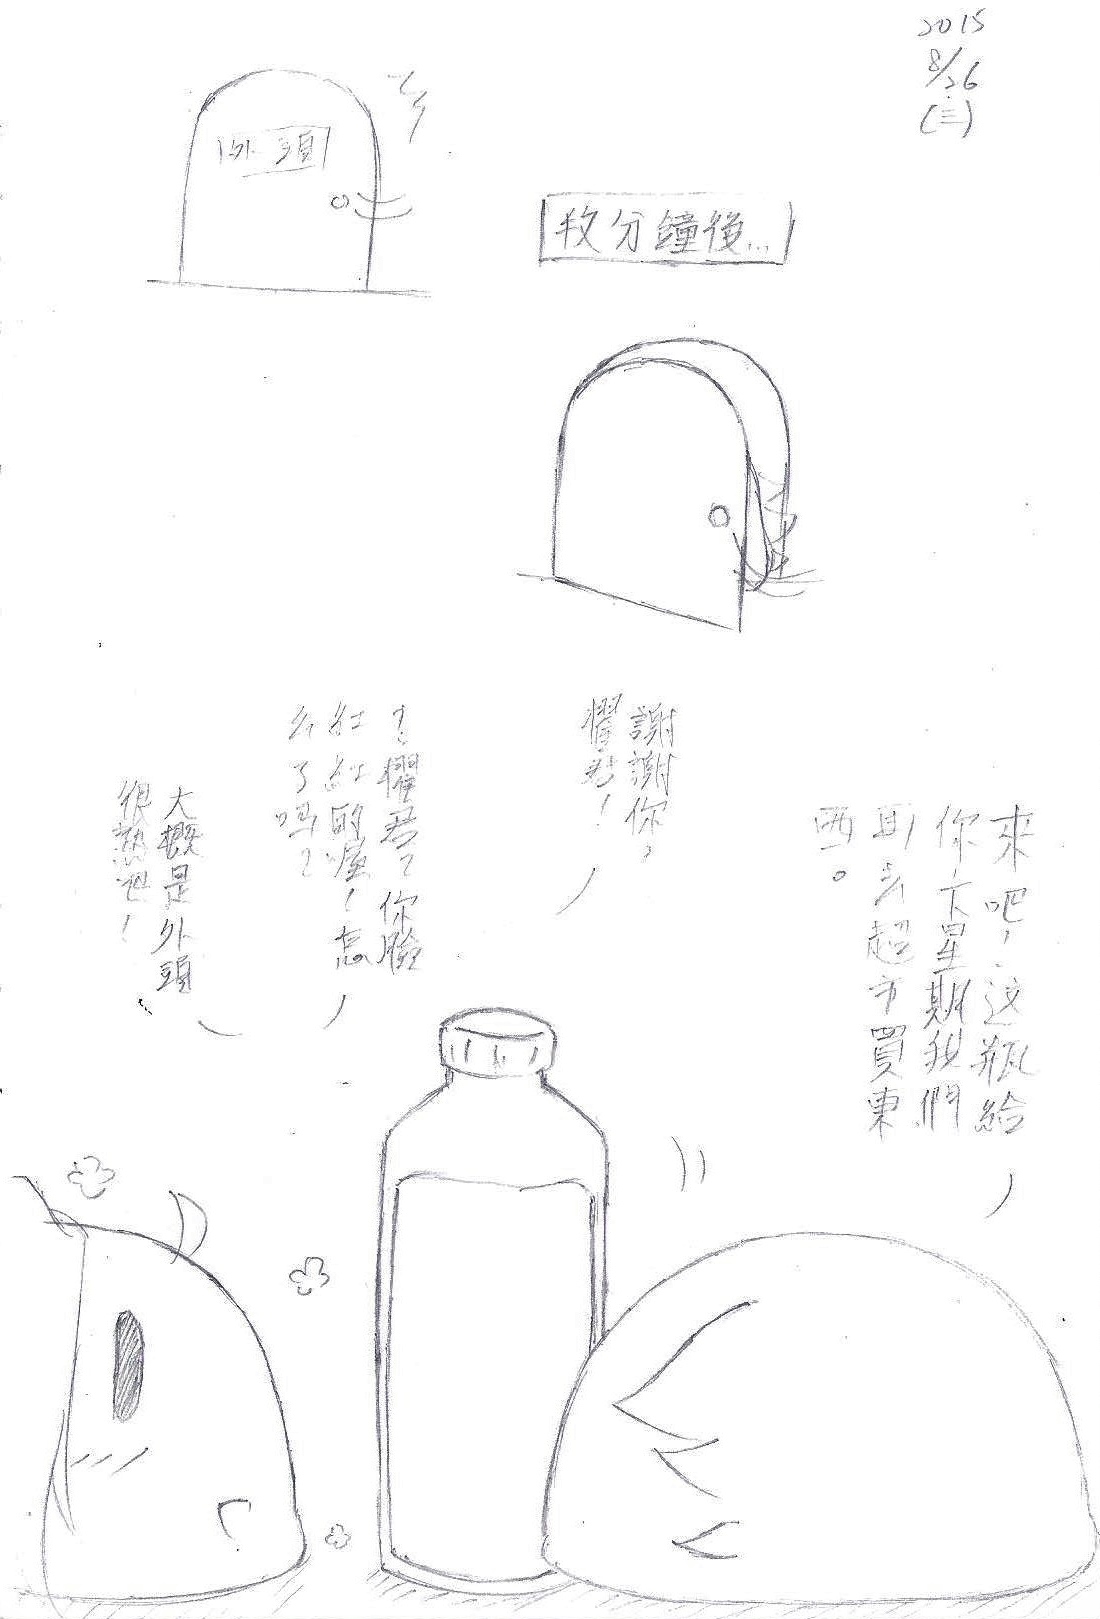 2015
8/26
(三)
外頭
數分鐘後...
來吧，這瓶給
你，下星期我們
再去超市買東
西。
謝謝你，
懼君！
！懼君？你臉
紅紅的喔！怎
么了嗎？
大概是外頭
很熱吧！